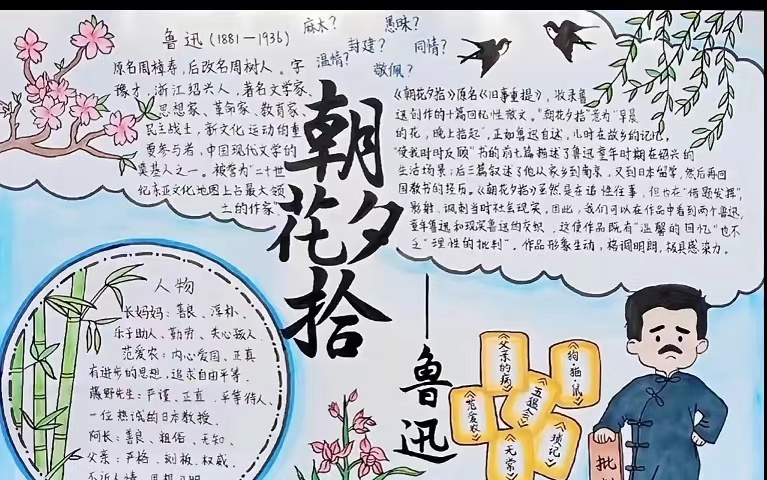 鲁迅(1881—1936)
麻木?
愚昧?
封建?
同情?
温情?
敬佩?
原名周樟寿,后改名周树人。字
豫才,浙江绍兴人,著名文学家、
思想家、革命家、教育家、
民主战士,新文化运动的重
要参与者,中国现代文学的
奠基人之一。被誉为“二十世
纪东亚文化地图上占最大领
土的作家
朝花夕拾
——鲁迅
《朝花夕拾》原名《旧事重提》,收录鲁
迅创作的十篇回忆性散文。“朝花夕拾”意为“早晨
的花,晚上拾起”,正如鲁迅自述,儿时在故乡的记忆,
“使我时时反顾”书的前七篇描述了鲁迅童年时期在绍兴的
生活场景;后三篇叙述了他从家乡到南京,又到日本留学,然后再回
国教书的经历。《朝花夕拾》虽然是在追忆往事,但也在“借题发挥”,
影射、讽刺当时社会现实。因此,我们可以在作品中看到两个鲁迅,
童年鲁迅和现实鲁迅的交织,这使作品既有“温馨的回忆”也不
乏“理性的批判”。作品形象生动,格调明朗,极具感染力。
人物
长妈妈:善良、淳朴、
乐于助人、勤劳、关心孩人
范爱农:内心爱国、正直
有进步的思想,追求自由平等.
藤野先生:严谨、正直、平等待人、
一位热诚的日本教授.
阿长:善良、粗俗、无知、
父亲:严格、刻板、权威、
《父亲的病》
《狗·猫·鼠》
《五猖会》
《范爱农》
《琐记》
《无常》
批